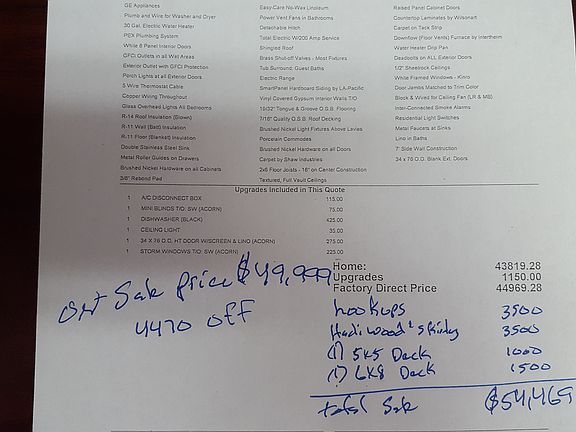 GE Appliances Easy-Care No-Wax Linoleum Raised Panel Cabinet Doors
Plumb and Wire for Washer and Dryer Power Vent Fans in Bathrooms Countertop Laminates by Wilsonart
30 Gal. Electric Water Heater Detachable Hitch Carpet on Tack Strip
PEX Plumbing System Total Electric W/200 Amp Service Downflow (Floor Vents) Furnace by Intertherm
White 6 Panel Interior Doors Shingled Roof Water Heater Drip Pan
GFCI Outlets in all Wet Areas Brass Shut-off Valves - Most Fixtures Deadbolts on ALL Exterior Doors
Exterior Outlet with GFCI Protection Tub Surround: Guest Baths 1/2" Sheetrock Ceilings
Porch Lights at all Exterior Doors Electric Range White Framed Windows - Kinro
5 Wire Thermostat Cable SmartPanel Hardboard Siding by LA-Pacific Door Jambs Matched to Trim Color
Copper Wiring Throughout Vinyl Covered Gypsum Interior Walls T/O Block & Wired for Ceiling Fan (LR & MB)
Glass Overhead Lights All Bedrooms 19/32" Tongue & Groove O.S.B. Flooring Inter-Connected Smoke Alarms
R-14 Roof Insulation (Blown) 7/16" Quality O.S.B. Roof Decking Residential Light Switches
R-11 Wall (Batt) Insulation Brushed Nickel Light Fixtures Above Lavies Metal Faucets at Sinks
R-11 Floor (Blanket) Insulation Porcelain Commodes Lino in Baths
Double Stainless Steel Sink Brushed Nickel Hardware on all Doors 7' Side Wall Construction
Metal Roller Guides on Drawers Carpet by Shaw Industries 34 x 76 O.D. Blank Ext. Doors
Brushed Nickel Hardware on all Cabinets 2x6 Floor Joists - 16" on Center Construction
3/8" Rebond Pad Textured, Full Vault Ceilings
Upgrades Included in This Quote
1 A/C DISCONNECT BOX 115.00
1 MINI BLINDS T/O: SW (ACORN) 75.00
1 DISHWASHER (BLACK) 425.00
1 CEILING LIGHT 35.00
1 34 X 76 O.D. HT DOOR W/SCREEN & LINO (ACORN) 275.00
1 STORM WINDOWS T/O: SW (ACORN) 225.00
Home: 43819.28
Upgrades 1150.00
Factory Direct Price 44969.28
Sale price $49,999
4470 off
hookups 3500
3500
(1) 5x5 Deck 1000
(1) 6x8 Deck 1500
total Sale $54,469